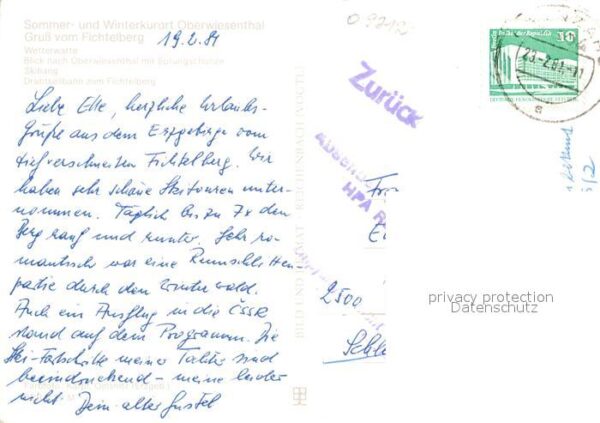 Sommer- und Winterkurort Oberwiesenthal
Gruß vom Fichtelberg
Wetterwarte
Blick nach Oberwiesenthal mit Sprungschanze
Skihang
Drahtseilbahn zum Fichtelberg
19.2.81
Liebe Elte, herzliche Urlaubs-
grüße aus dem Erzgebirge vom
tiefverschneiten Fichtelberg. Wir
haben sehr schöne Skitouren unter-
nommen. Täglich bis zu 7x den
Berg rauf und runter. Sehr ro-
mantisch war eine Rennschlitten-
partie durch den Winterwald.
Auch ein Ausflug in die ČSSR
stand auf dem Programm. Die
Ski-Fortschritte meiner Tochter sind
beeindruckend – meine leider
nicht. Dein alter Gustel
BILD UND HEIMAT REICHENBACH (VOGTL)
Zurück
HPA
10
23.2.81-11
a
2500
privacy protection
Datenschutz